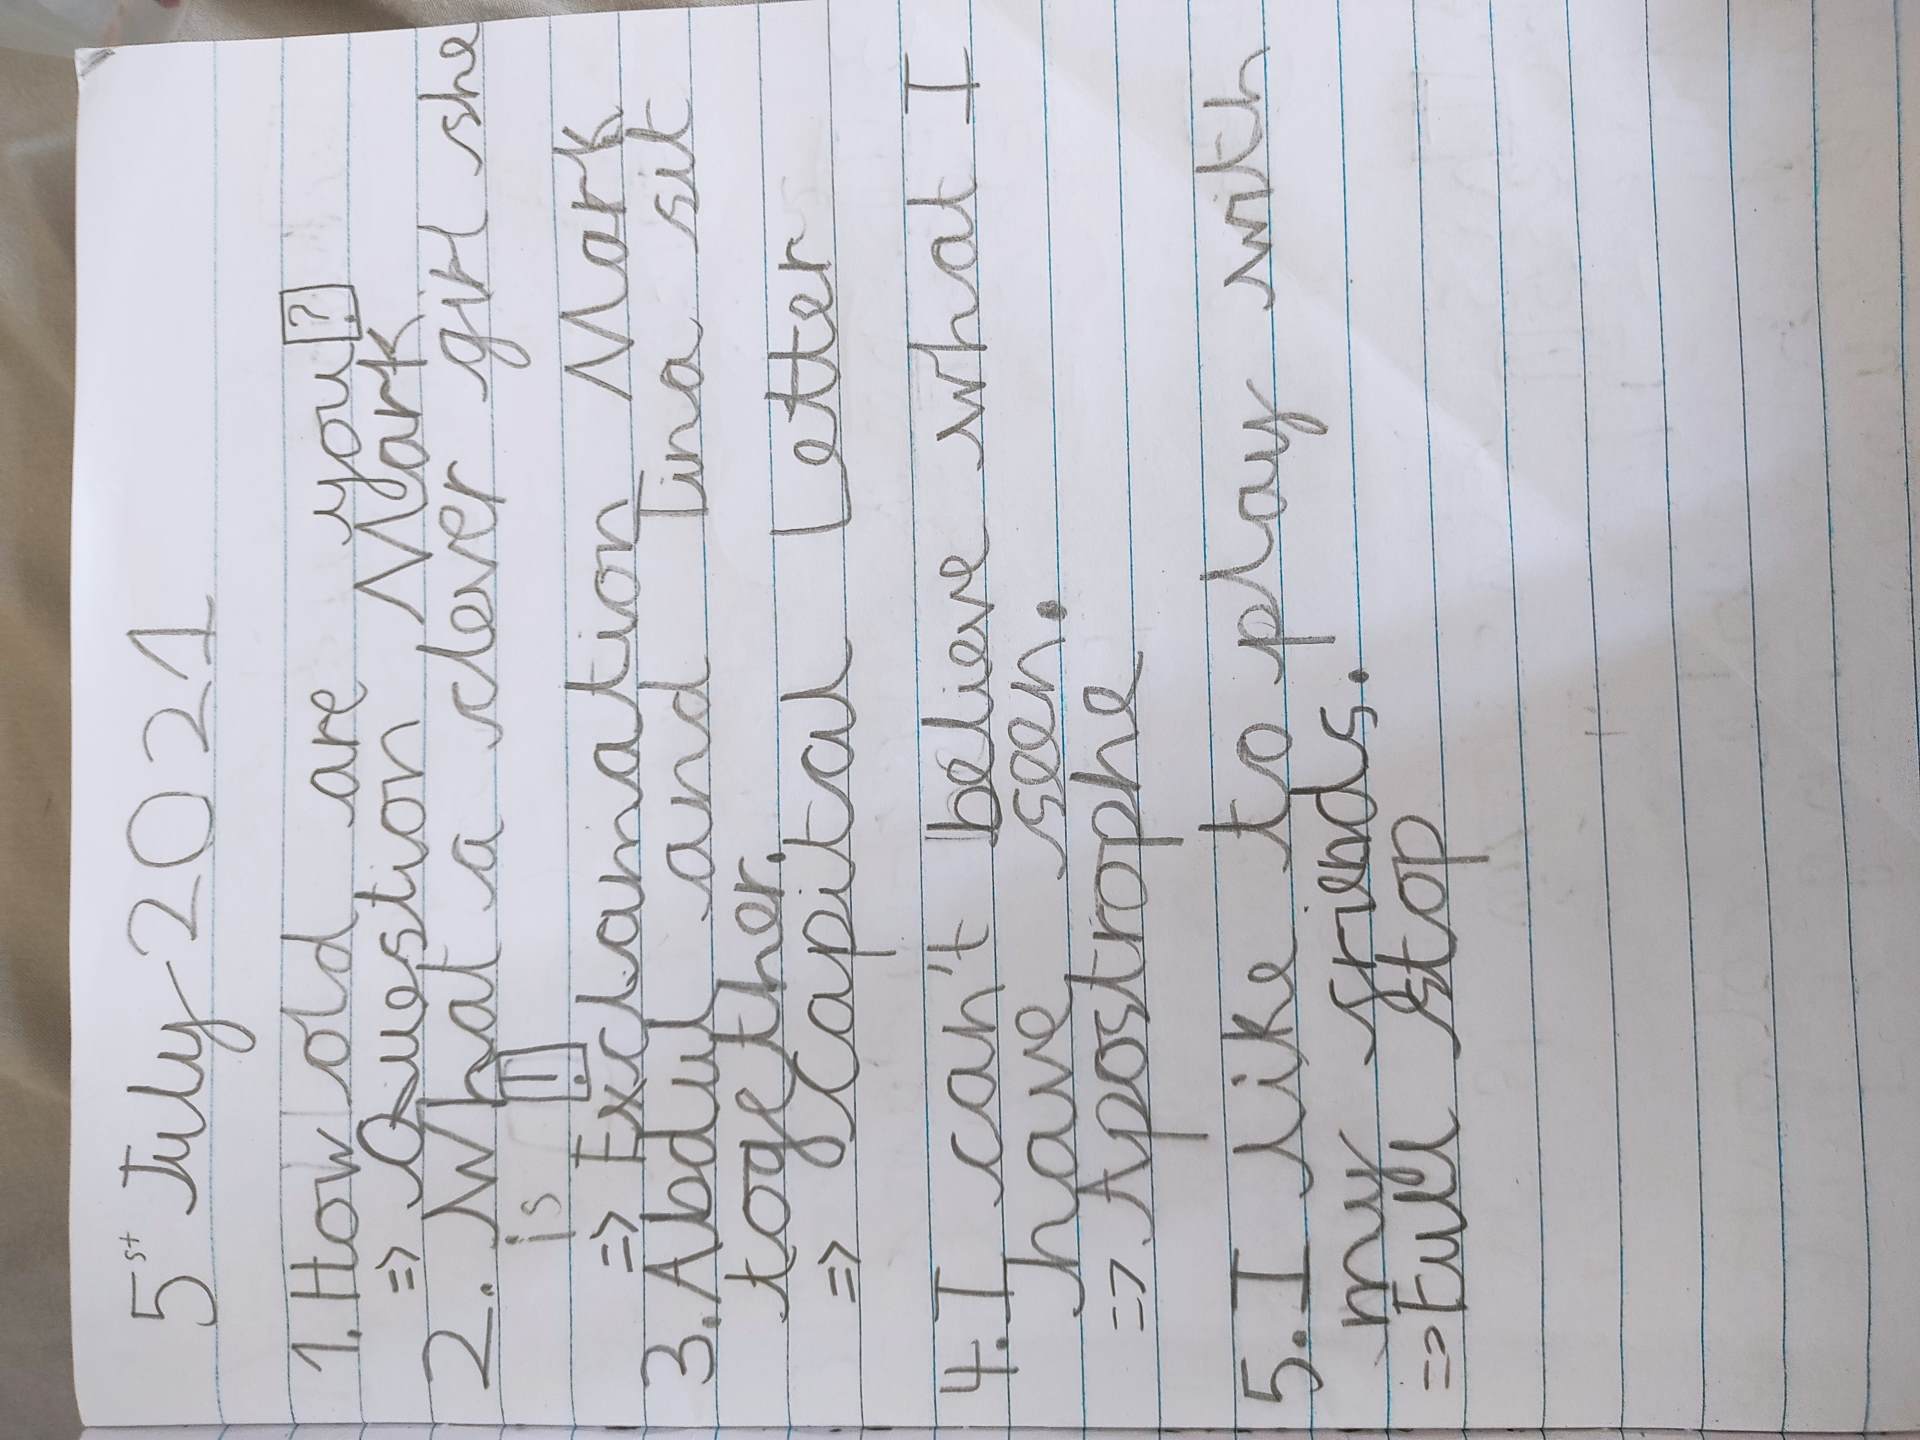 5st July 2021
1. How old are you?
=> Question Mark
2. What a clever girl she
is !
=> Exclamation Mark
3. Abdul and Tina sit
together.
=> Capital Letter
4. I can't believe what I
have seen.
=> Apostrophe
5. I like to play with
my friends.
=> Full stop